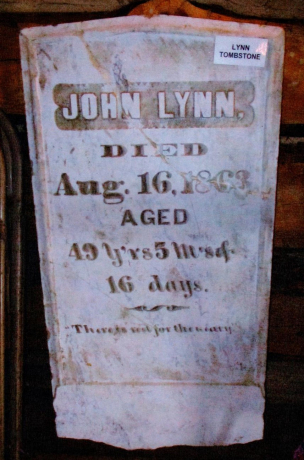 LYNN
TOMBSTONE
JOHN LYNN,
DIED
Aug. 16, 1863
AGED
49 y'rs 5 m's &
16 days.
There is rest for the weary.